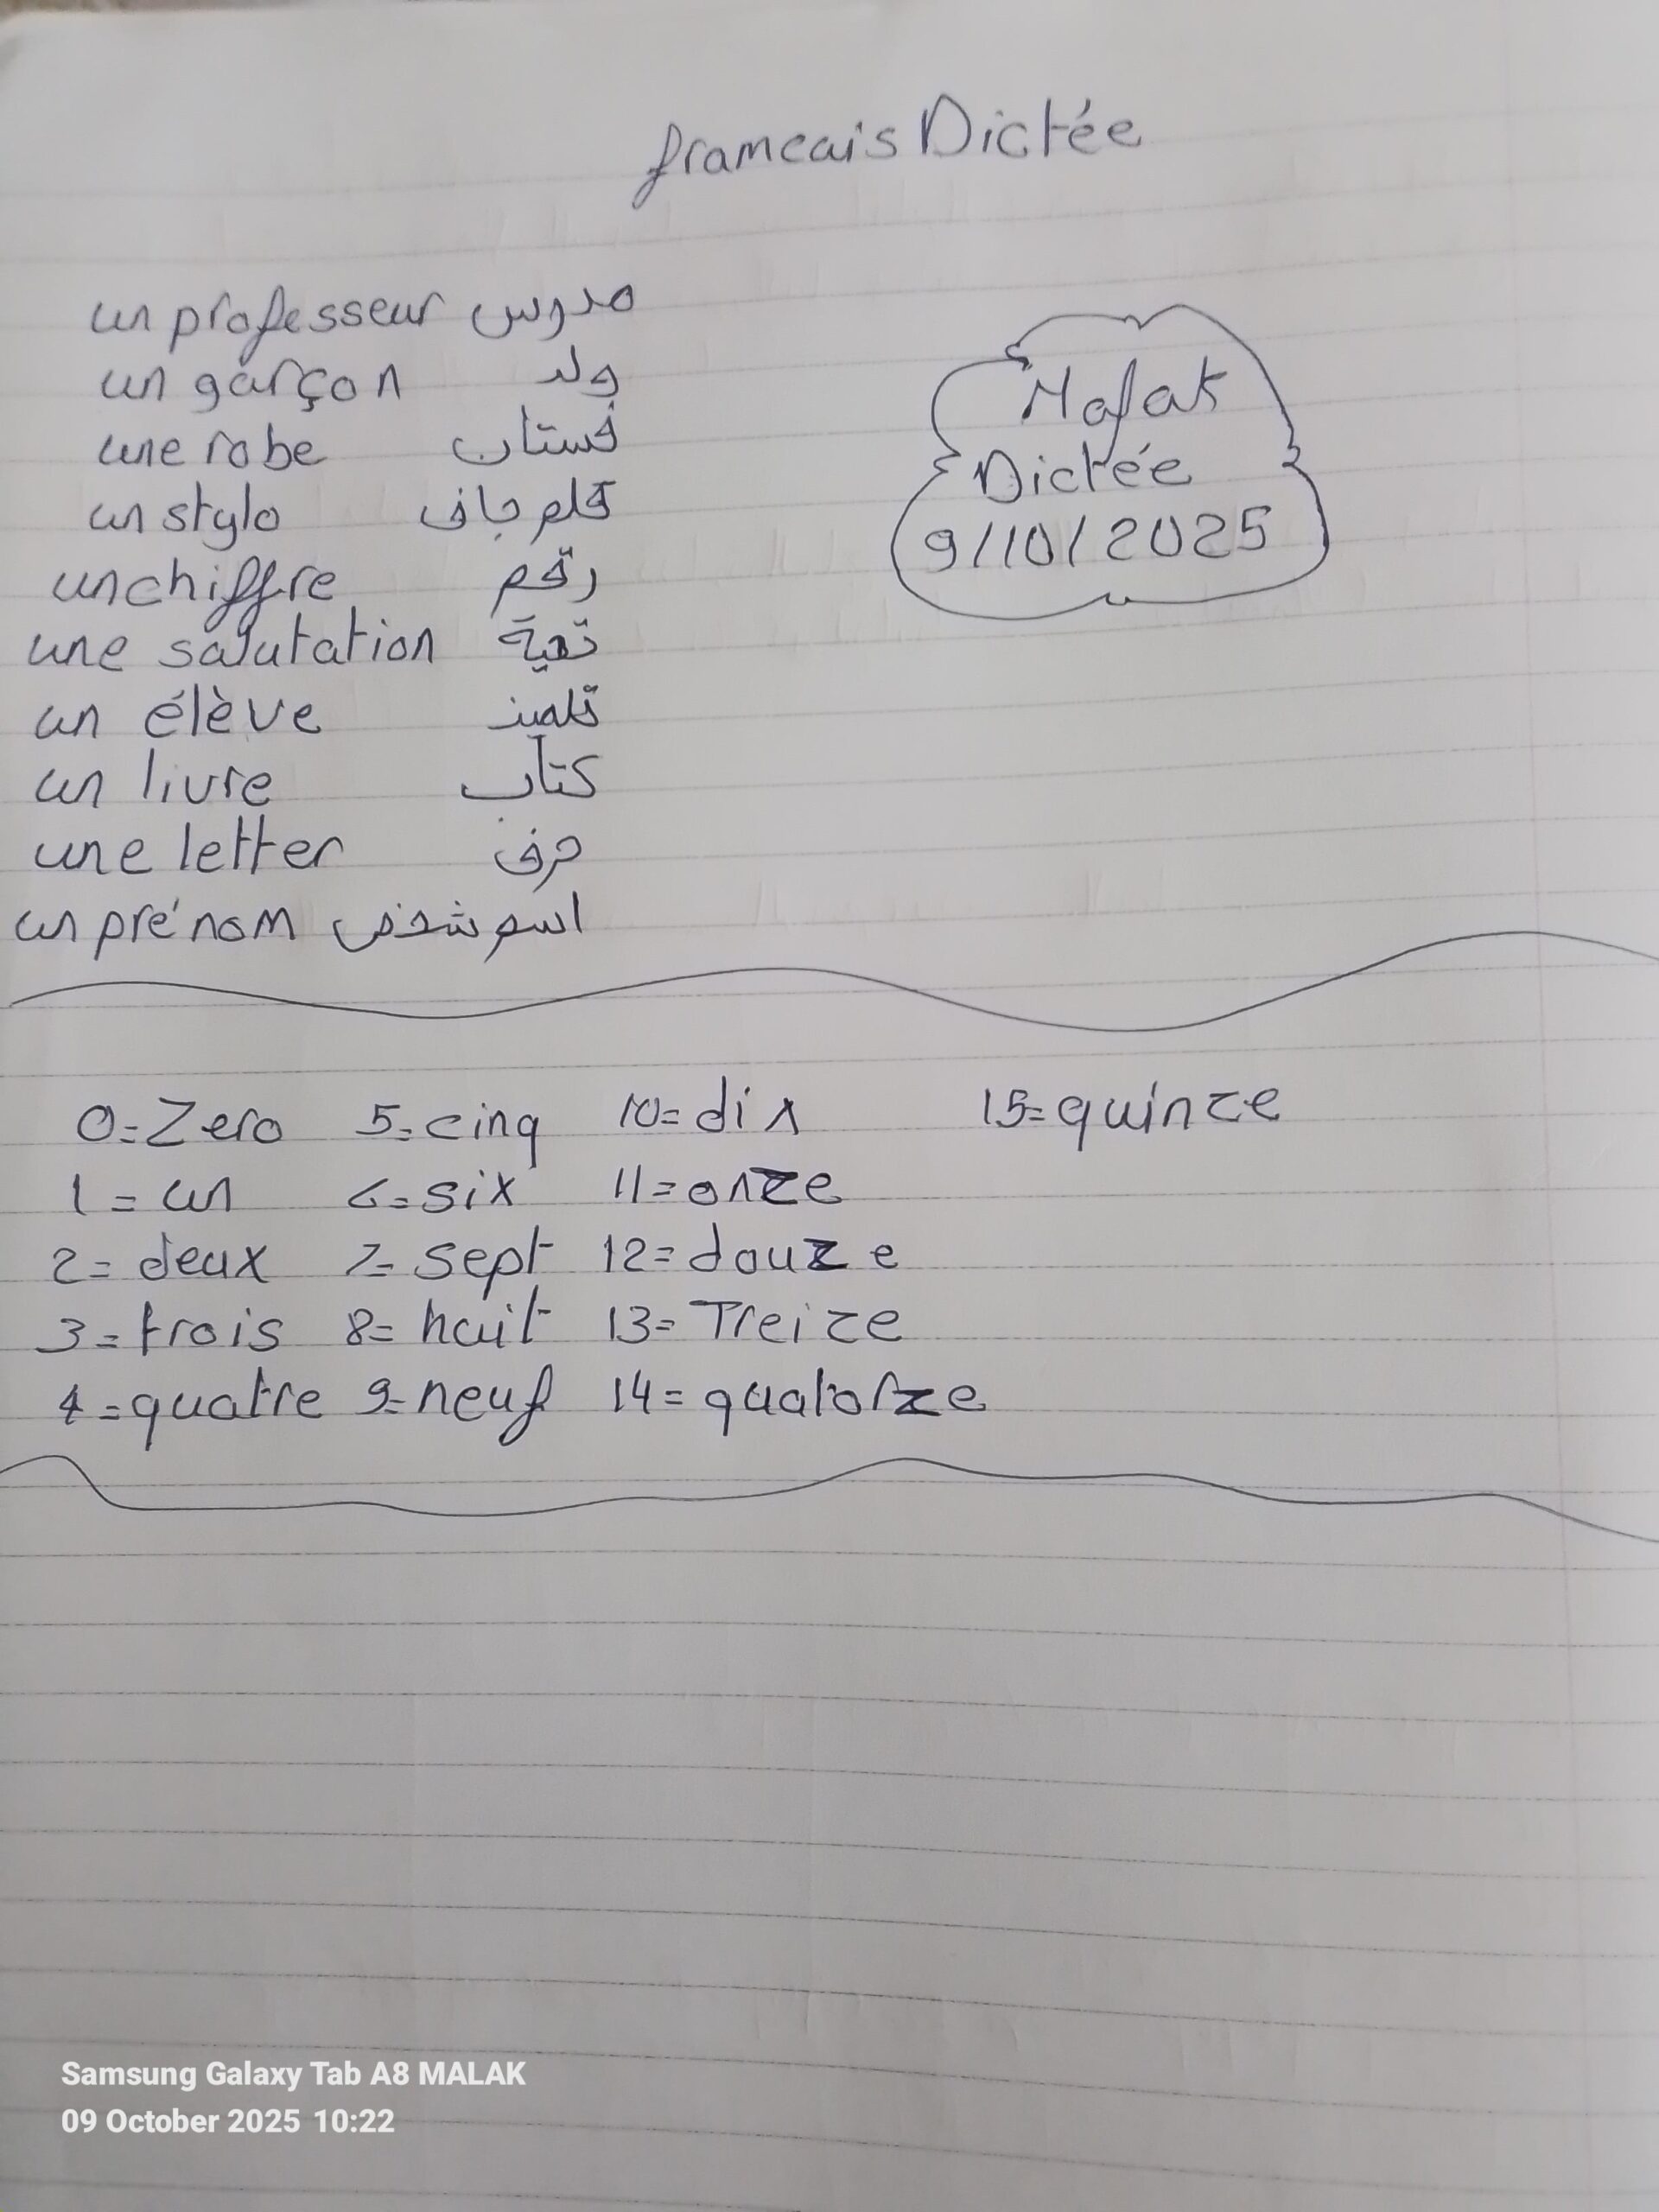 francais Dictée
un professeur مدرس
un garçon ولد
une robe فستان
un stylo قلم جاف
un chiffre رقم
une salutation تحية
un élève تلميذ
un livre كتاب
une letter حرف
un prénom اسم شخص
Malak
Dictée
9/10/2025
0=Zero 5=cinq 10=dix 15=quinze
1=un 6=six 11=onze
2=deux 7=sept 12=douze
3=trois 8=huit 13=Treize
4=quatre 9=neuf 14=quatorze
Samsung Galaxy Tab A8 MALAK
09 October 2025 10:22